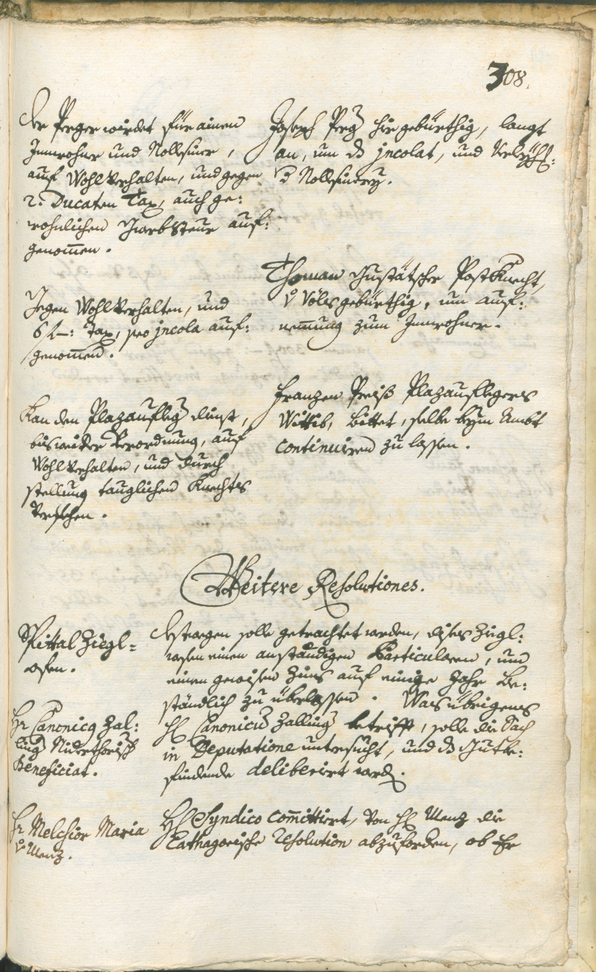 308.
Der Perger wirdet für ainen
Innwohner und Nollfüer,
auf Wohlverhalten, und gegen
2: Ducaten Tax, auch ge:
wohnlichen Steur auf:
genommen.
Joseph Prez hiegebürthig, langt
an, um ds jncolat, und
Gegen Wohlverhalten, und
6 f —: Tax, pro jncola auf:
genommen.
Thoman Postknecht,
v Völs gebürthig, um auf:
nemmung zum Innwohner.
Kan den Plazaufleg dienst,
bis weiter Verordnung, auf
Wohlverhalten, und durch
stellung tauglichen Knechts
versechen.
Franzen Preiß Plazauflegers
Wittib, bittet, selbe beym Ambt
continuiren zu lassen.
Weitere Resolutiones.
Spittal Ziegl=
ofen.
Destwegen solle getrachtet werden, dises Ziegl:
ofen einen anständigen Particularn, und
einen gewisen Zins auf einige Jahr be:
ständlich zu überlassen. Was übrigens
Hr Canonicq Zal:
ling
Beneficiat.
H Canonicus Zalling betrifft, solle die Sach
in Deputatione untersucht, und ds Gutbe:
findende deliberirt werden.
Hr Melchior Maria
v Menz.
H Syndico committirt, von H Menz die
Cathegorische Resolution abzufordern, ob Er